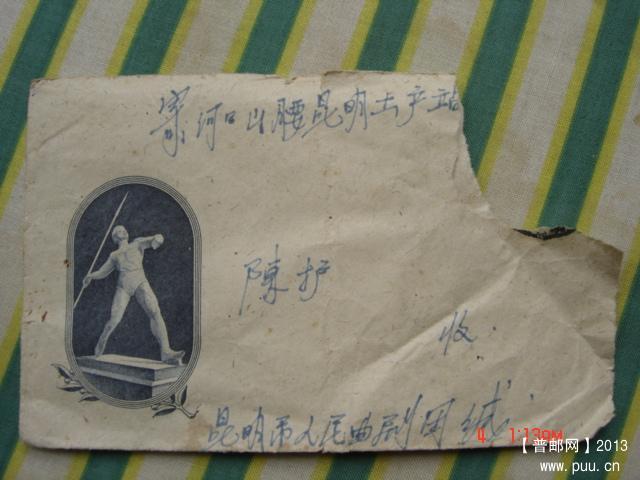 寨河口山腰昆明土产站
陳护
收
昆明市人民曲剧团缄
4 1:13PM
【普邮网】2013
www.puu.cn